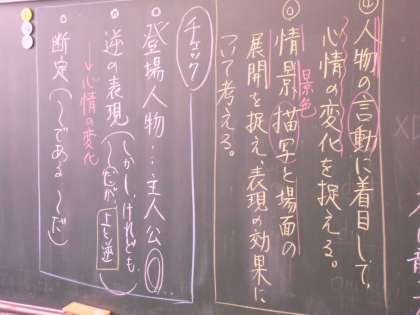 ④人物の言動に着目して、
心情の変化を捉える。
◎情景描写と場面の
景色
展開を捉え、表現の効果に
ついて考える。
チェック
●登場人物…主人公◎
●逆の表現(しかし、けれども、
〜だが、上と逆)
→心情の変化
●断定(〜である 〜だ)